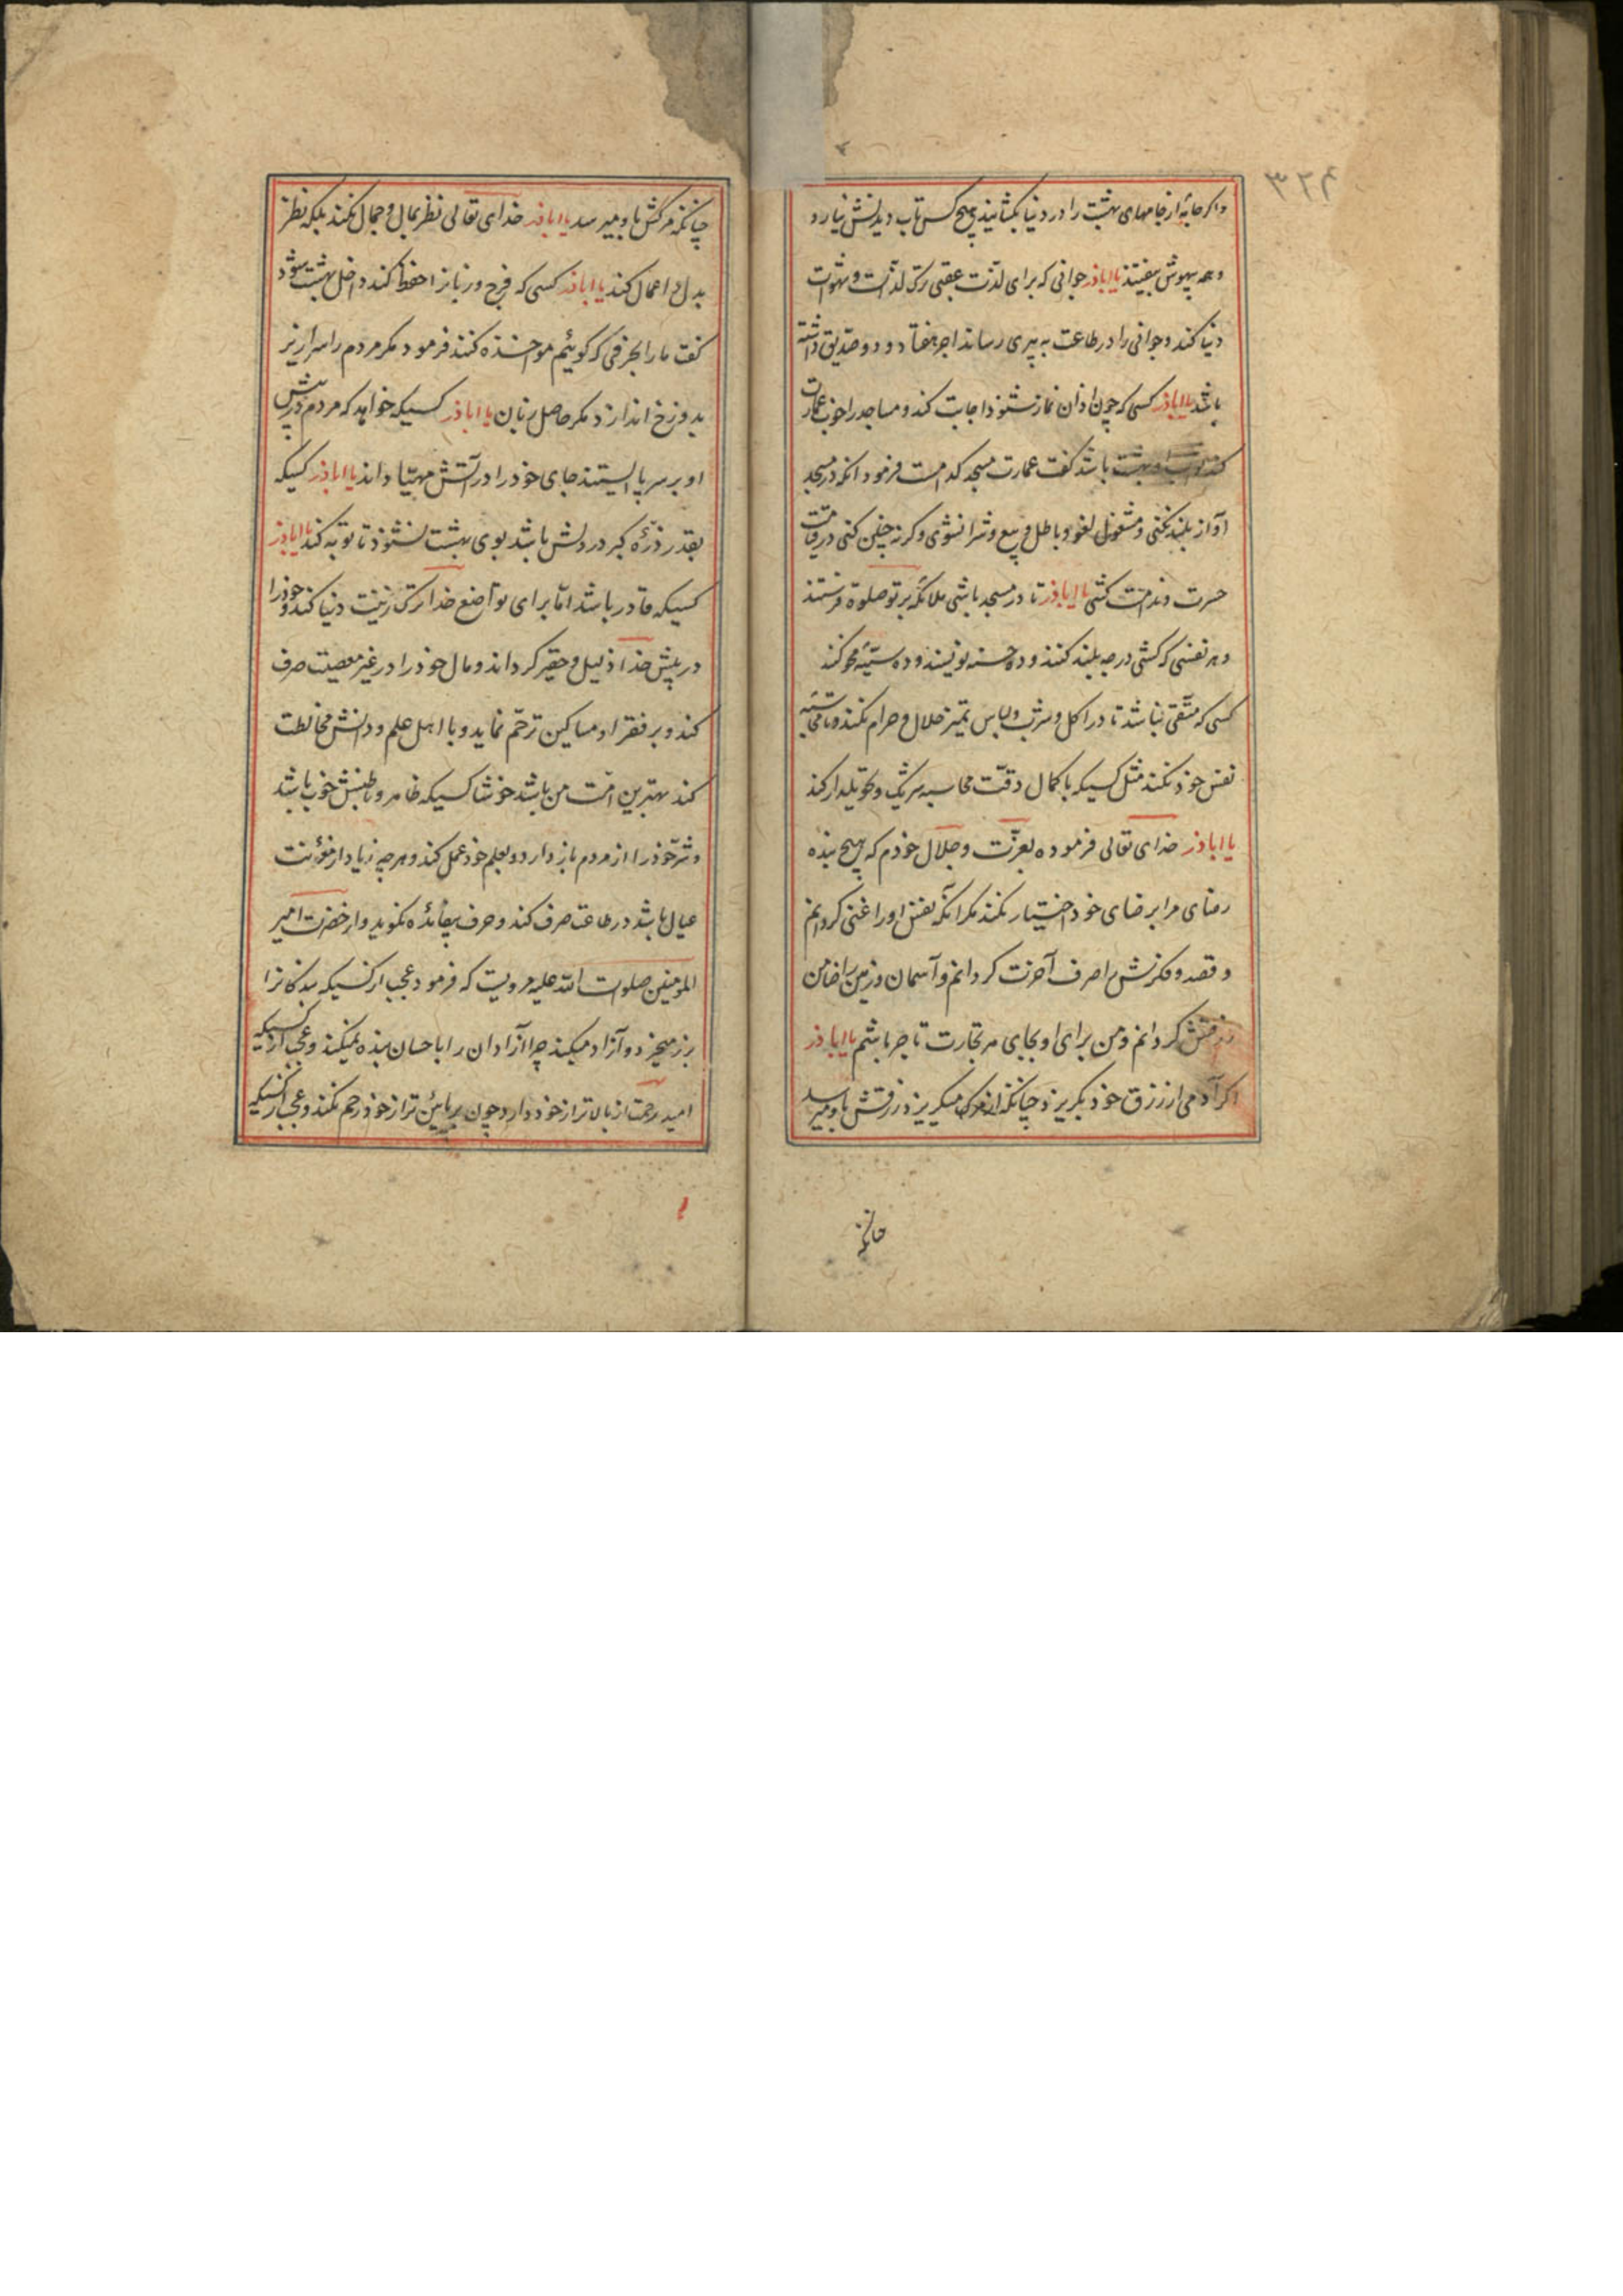 ۳۲۴
و اگر جامهٔ از جامهای بهشت را در دنیا بگشایند هیچ کس تاب دیدنش نیارد
و همه بیهوش بیفتند یا اباذر جوانی که برای لذت عقبی ترک لذات و شهوات
دنیا کند و جوانی را در طاعت به پیری رساند اجر هفتاد و دو صدیق داشته
باشد یا اباذر کسی که چون اذان نماز شنود اجابت کند و مساجد را خوب عمارت
کند بهشت باشد گفت عمارت مسجد کدامست فرمود انکه در مسجد
آواز بلند نکنی و مشغول لغو و باطل و بیع و شرا نشوی و کر نه چنین کنی در قیامت
حسرت و ندامت کشی یا اباذر تا در مسجد باشی ملائکه بر تو صلوة فرستند
و هر نفسی که کشی درجه بلند کنند و ده حسنه نویسند و ده سیئه محو کنند
کسی که متقی نباشد تا در اکل و شرب و لباس تمیز حلال و حرام نکند و تا محاسبه
نفس خود نکند مثل کسیکه با کمال دقت محاسبه شریک و تحویلدار کند
یا اباذر خدای تعالی فرموده بعزت و جلال خودم که هیچ بنده
رضای مرا بر رضای خود اختیار نکند مکر انکه نفس او را غنی کردانم
و قصد و فکرش را صرف آخرت کردانم و آسمان و زمین را ضامن
رزقش کردانم و من برای او بجای هر تجارت تاجر باشم یا اباذر
اکر آدمی از رزق خود بکریزد چنانکه از مرک میکریزد رزقش باو میرسد
چنانکه
چنانکه مرکش باو میرسد یا اباذر خدای تعالی نظر بمال و جمال نکند بلکه نظر
بدل و اعمال کند یا اباذر کسی که فرج و زبانرا حفظ کند داخل بهشت شود
گفت ما را بحرفی که کوئیم مواخذه کنند فرمود مکر مردم را سرازیر
بدوزخ اندازد مکر حاصل زبان یا اباذر کسیکه خواهد که مردم در پیش
او بر سر پا ایستند جای خود را در آتش مهیا داند یا اباذر کسیکه
بقدر ذرّه کبر در دلش باشد بوی بهشت نشنود تا توبه کند یا اباذر
کسیکه قادر باشد امّا برای تواضع خدا ترک زینت دنیا کند و خود را
در پیش خدا ذلیل و حقیر کرداند و مال خود را در غیر معصیت صرف
کند و بر فقرا و مساکین ترحّم نماید و با اهل علم و دانش مخالطت
کند بهترین امّت من باشد خوشا کسیکه ظاهر و باطنش خوب باشد
و شرّ خود را از مردم باز دارد و بعلم خود عمل کند و هر چه زیاد از مؤنت
عیال باشد در طاعت صرف کند و حرف بیفائده نکوید و از حضرت امیر
المؤمنین صلوات الله علیه مرویست که فرمود عجب از کسیکه بندکانرا
بزر میخرد و آزاد میکند چرا آزادان را باحسان بنده نمیکند و عجب از کسیکه
امید رحمت از بالاتر از خود دارد چون بر پائین تر از خود رحم نکند و عجب از کسیکه